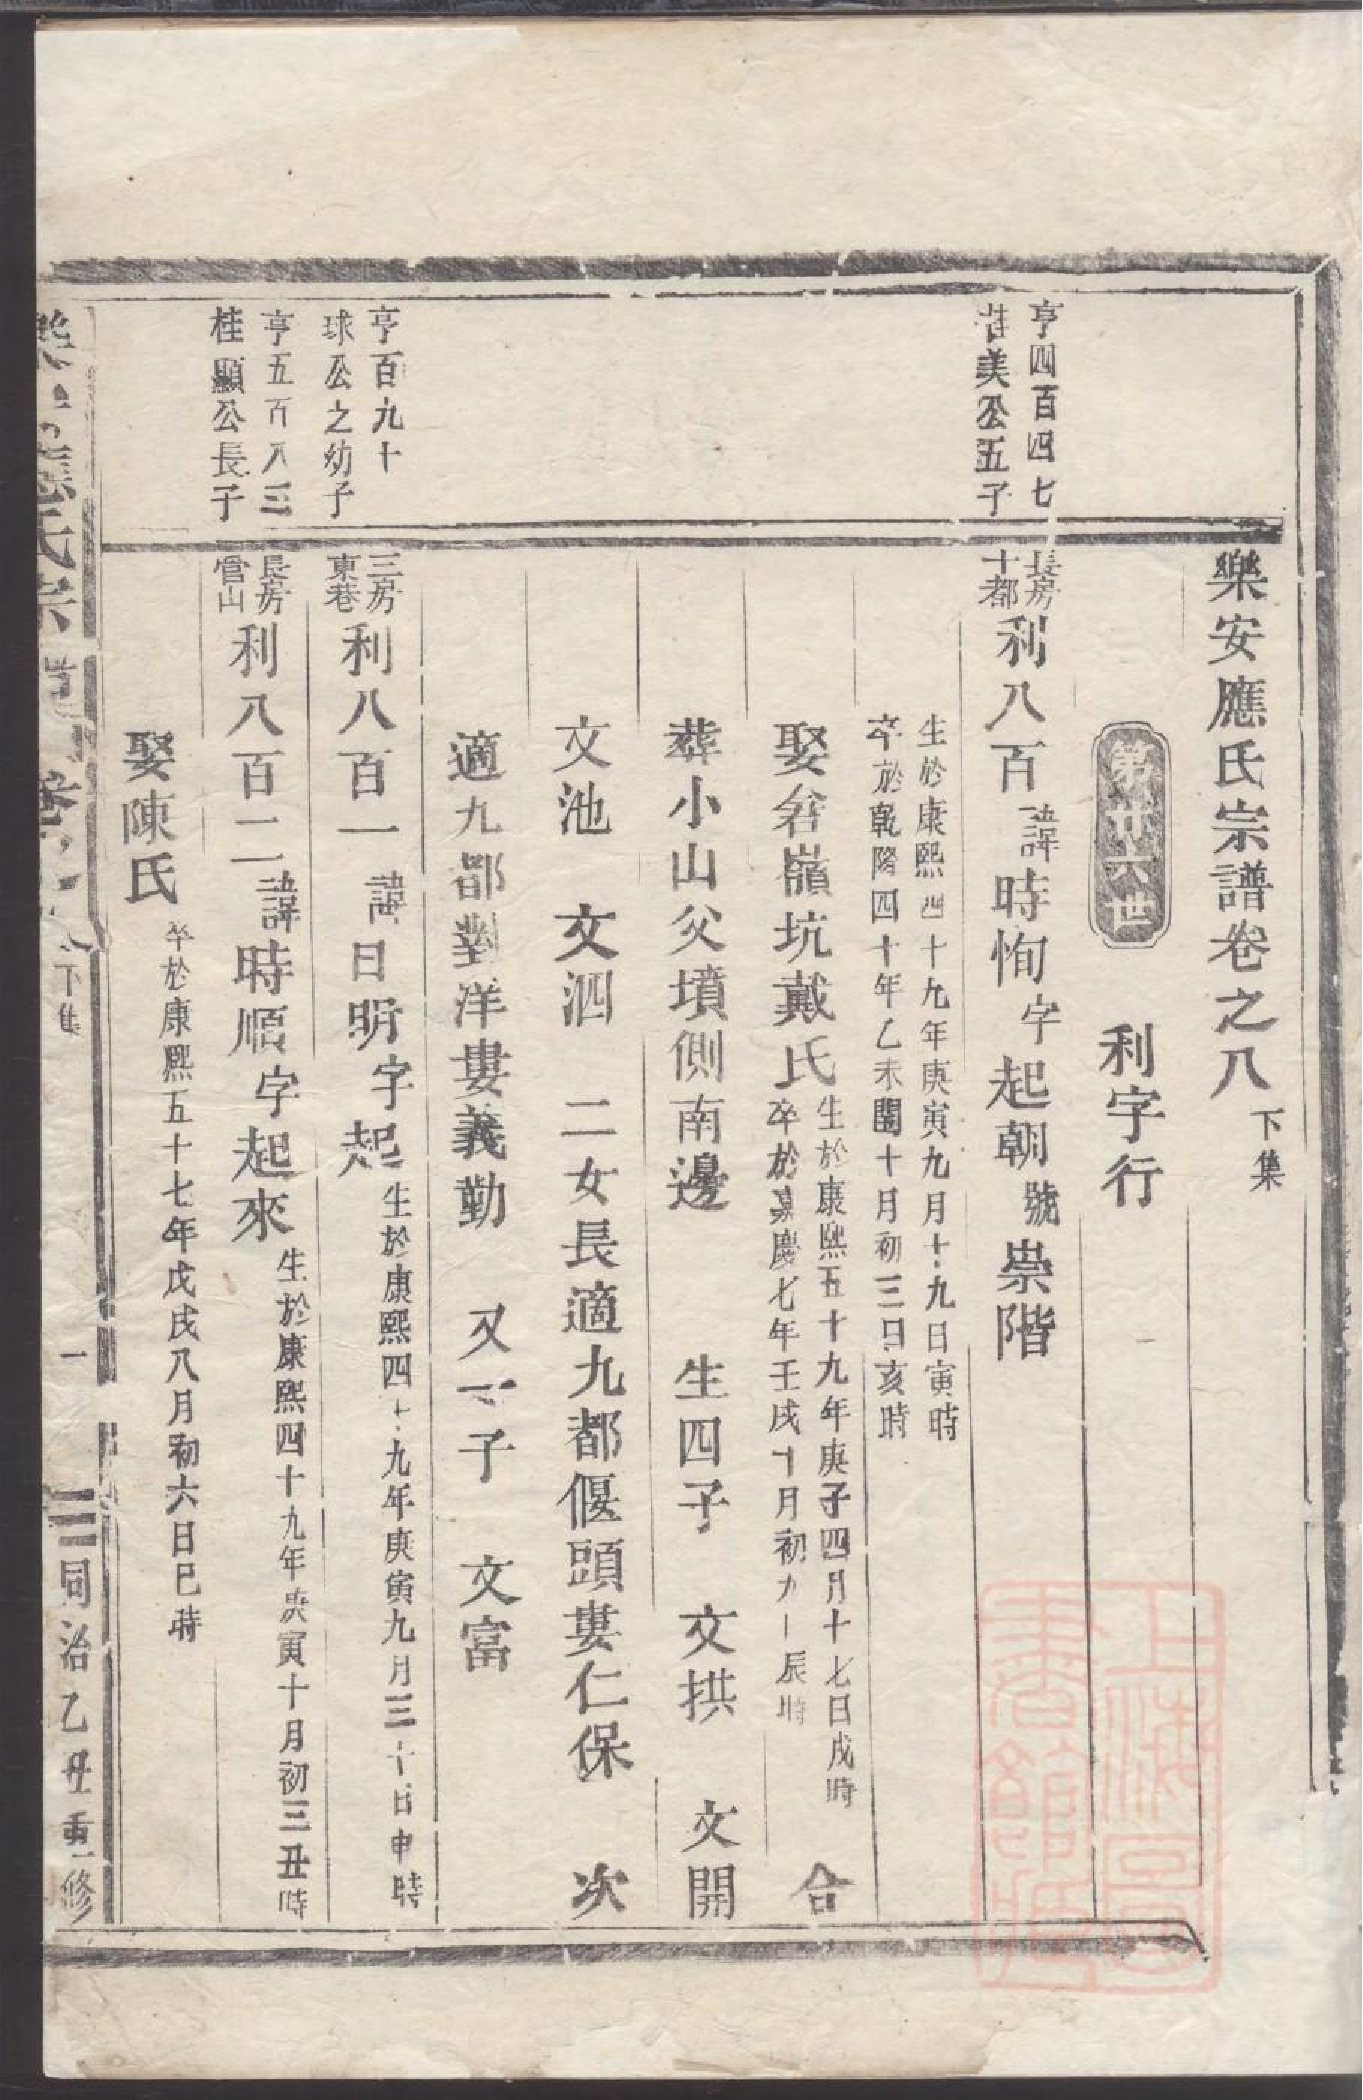 樂安應氏宗譜卷之八 下集
第廿六世 利字行
亨四百四七
桂美公五子
長房
十都
利八百 諱時恂 字起朝 號崇階
生於康熙四十九年庚寅九月十九日寅時
卒於乾隆四十年乙未閏十月初三日亥時
娶嶺坑戴氏
生於康熙五十九年庚子四月十七日戌時
卒於嘉慶七年壬戌十月初九 辰時
合
葬小山父墳側南邊 生四子 文拱 文開
文池 文泗 二女長適九都偃頭婁仁保 次
適九都對洋婁義勤 又一子 文富
亨百九十
球公之幼子
三房
東巷
利八百一 諱日明字起
生於康熙四十九年庚寅九月三十日申時
亨五百八三
桂顯公長子
長房
官山
利八百二 諱時順字起來
生於康熙四十九年庚寅十月初三丑時
娶陳氏
卒於康熙五十七年戊戌八月初六日巳時
樂安應氏宗譜 卷之八 下集 一 同治乙丑重修
上海圖書館藏